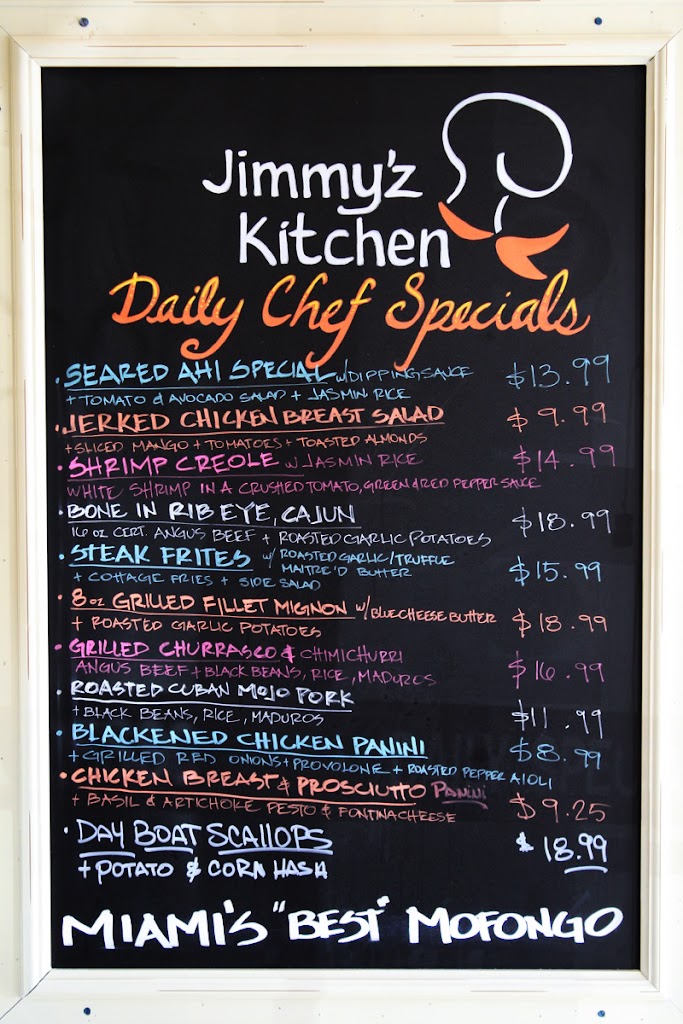 Jimmy'z
Kitchen
Daily Chef Specials
· SEARED AHI SPECIAL w/ DIPPING SAUCE $13.99
+ TOMATO & AVOCADO SALAD + JASMIN RICE
· JERKED CHICKEN BREAST SALAD $9.99
+ SLICED MANGO + TOMATOES + TOASTED ALMONDS
· SHRIMP CREOLE w/ JASMIN RICE $14.99
WHITE SHRIMP IN A CRUSHED TOMATO, GREEN & RED PEPPER SAUCE
· BONE IN RIB EYE, CAJUN $18.99
16 oz CERT. ANGUS BEEF + ROASTED GARLIC POTATOES
· STEAK FRITES w/ ROASTED GARLIC/TRUFFLE $15.99
MAITRE'D BUTTER
+ COTTAGE FRIES + SIDE SALAD
· 8 oz GRILLED FILLET MIGNON w/ BLUE CHEESE BUTTER $18.99
+ ROASTED GARLIC POTATOES
· GRILLED CHURRASCO & CHIMICHURRI $16.99
ANGUS BEEF + BLACK BEANS, RICE, MADUROS
· ROASTED CUBAN MOJO PORK $11.99
+ BLACK BEANS, RICE, MADUROS
· BLACKENED CHICKEN PANINI $8.99
+ GRILLED RED ONIONS + PROVOLONE + ROASTED PEPPER AIOLI
· CHICKEN BREAST & PROSCIUTTO PANINI $9.25
+ BASIL & ARTICHOKE PESTO & FONTINA CHEESE
· DAY BOAT SCALLOPS $18.99
+ POTATO & CORN HASH
MIAMI'S "BEST" MOFONGO